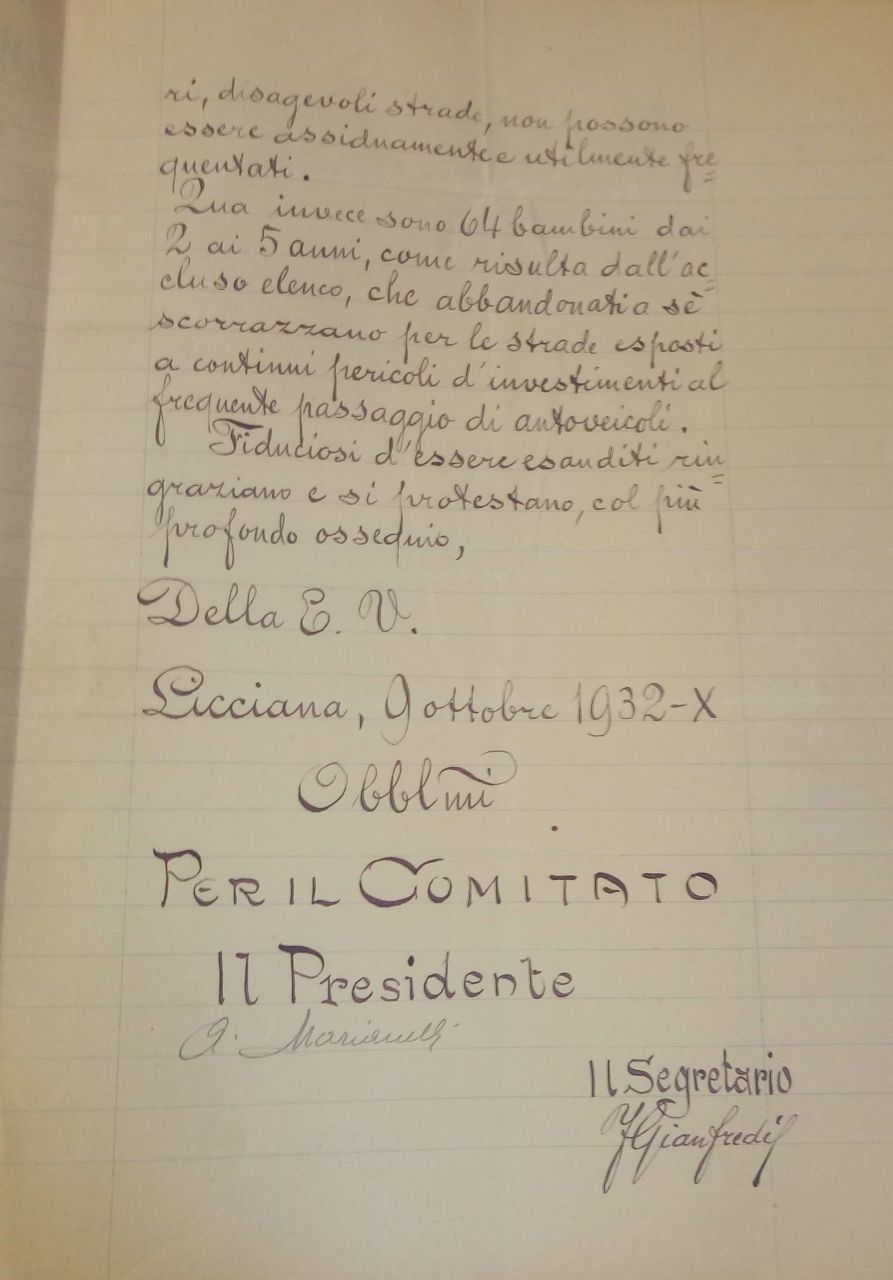 ri, disagevoli strade, non possono
essere assiduamente e utilmente fre=
quentati.
Qua invece sono 64 bambini dai
2 ai 5 anni, come risulta dall'ac=
cluso elenco, che abbandonati a sè
scorrazzano per le strade esposti
a continui pericoli d'investimenti al
frequente passaggio di autoveicoli.
Fiduciosi d'essere esauditi rin=
graziano e si protestano, col più
profondo ossequio,
Della E. V.
Licciana, 9 ottobre 1932-X
Obblmi
PER IL COMITATO
Il Presidente
Il Segretario